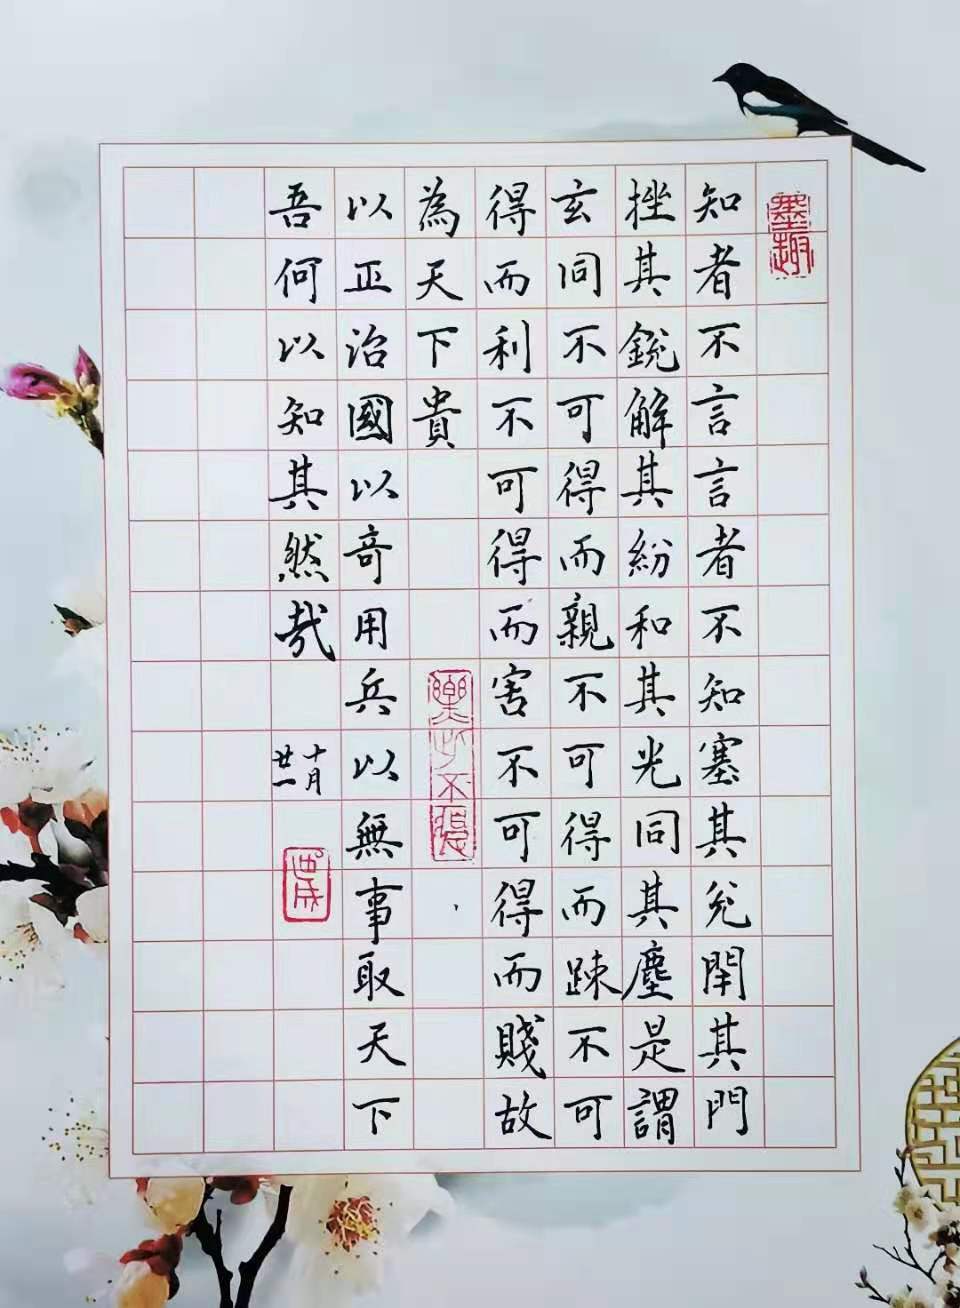 墨趣
知者不言言者不知塞其兊閉其門
挫其銳解其紛和其光同其塵是謂
玄同不可得而親不可得而踈不可
得而利不可得而害不可得而賤故
為天下貴
以正治國以奇用兵以無事取天下
吾何以知其然哉
十月
廿一